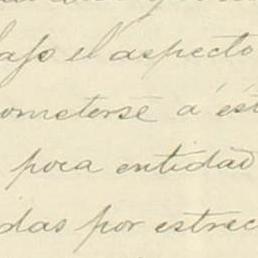 bajo el aspecto
ometerse á est
poca entidad
das por estrec